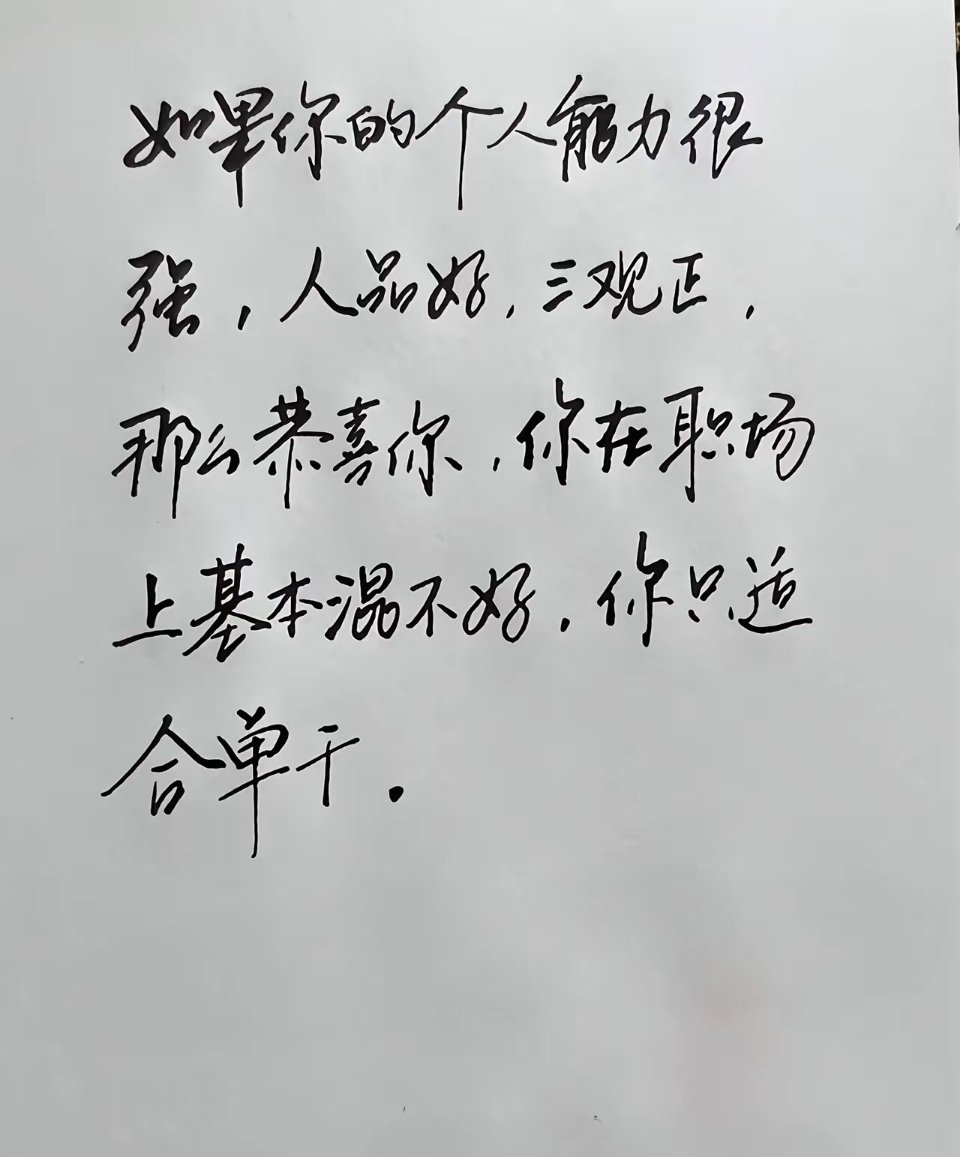 如果你的个人能力很
强，人品好，三观正，
那么恭喜你，你在职场
上基本混不好，你只适
合单干.